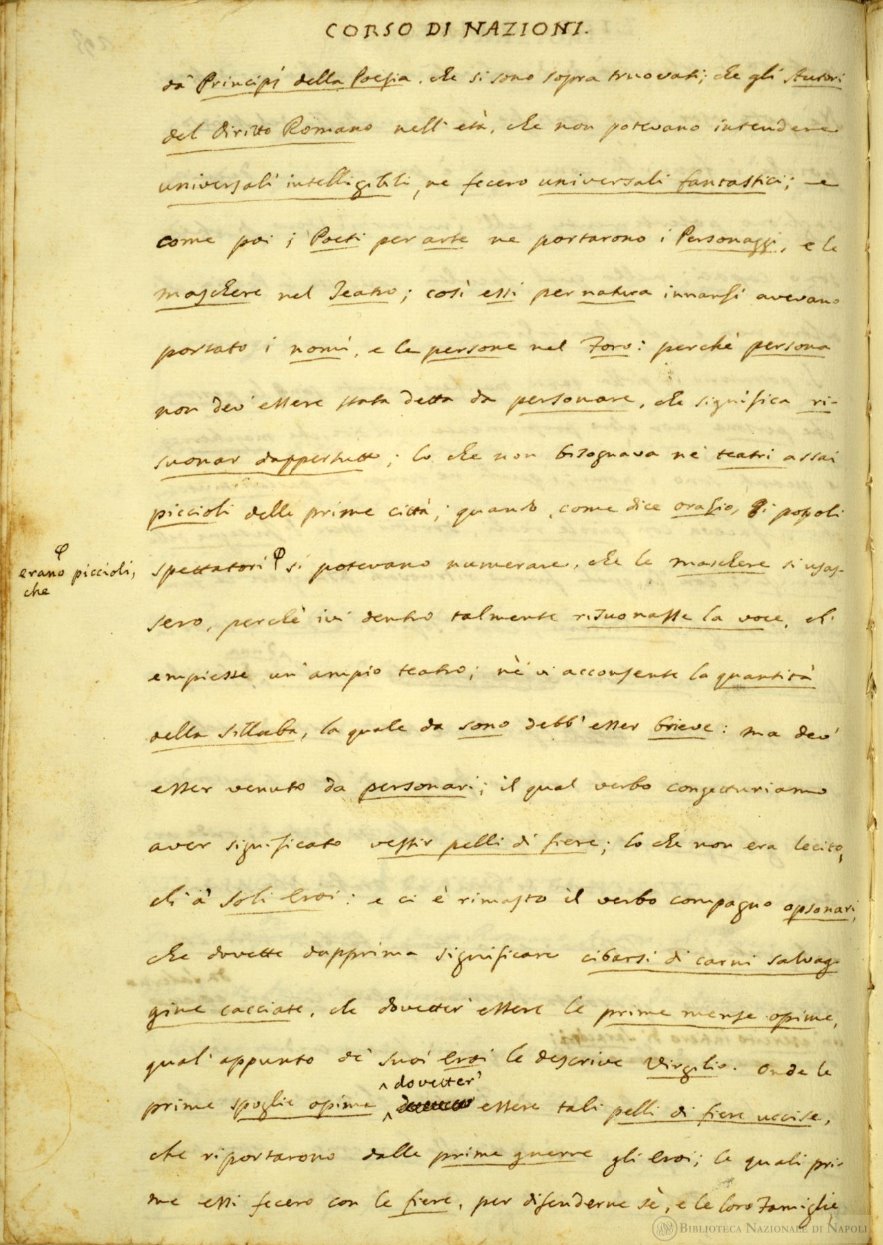 CORSO DI NAZIONI.
da' Principj della Poesia, che si sono sopra truovati; che gli Autori
del Diritto Romano nell'età, che non potevano intendere
universali intelligibili, ne fecero universali fantastici; e
come poi i Poeti per arte ne portarono i Personaggi, e le
maschere nel Teatro; così essi per natura innanzi avevano
portato i nomi, e le persone nel Foro: perchè persona
non dev' essere stata detta da personare, che significa ri-
suonar dappertutto; lo che non bisognava ne' teatri assai
piccioli delle prime città; quando, come dice Orazio, i popoli
φ
erano piccioli,
che
spettatori φ si potevano numerare, che le maschere si usas-
sero, perchè ivi dentro talmente risuonasse la voce, ch'
empiesse un' ampio teatro; nè vi acconsente la quantità
della sillaba, la quale da sono debb' esser brieve: ma dev'
esser venuto da personari; il qual verbo congetturiamo
aver significato vestir pelli di fiere; lo che non era lecito,
ch' a' soli Eroi: e ci è rimasto il verbo compagno opsonari,
che dovette dapprima significare cibarsi di carni salvag-
gine cacciate, che dovetter' essere le prime mense opime,
qual' appunto de' suoi Eroi le descrive Virgilio. Onde le
dovetter'
prime spoglie opime essere tali pelli di fiere uccise,
che riportarono dalle prime guerre gli Eroi; le quali pri-
me essi fecero con le fiere, per difenderne sè, e le loro Famiglie
BIBLIOTECA NAZIONALE DI NAPOLI